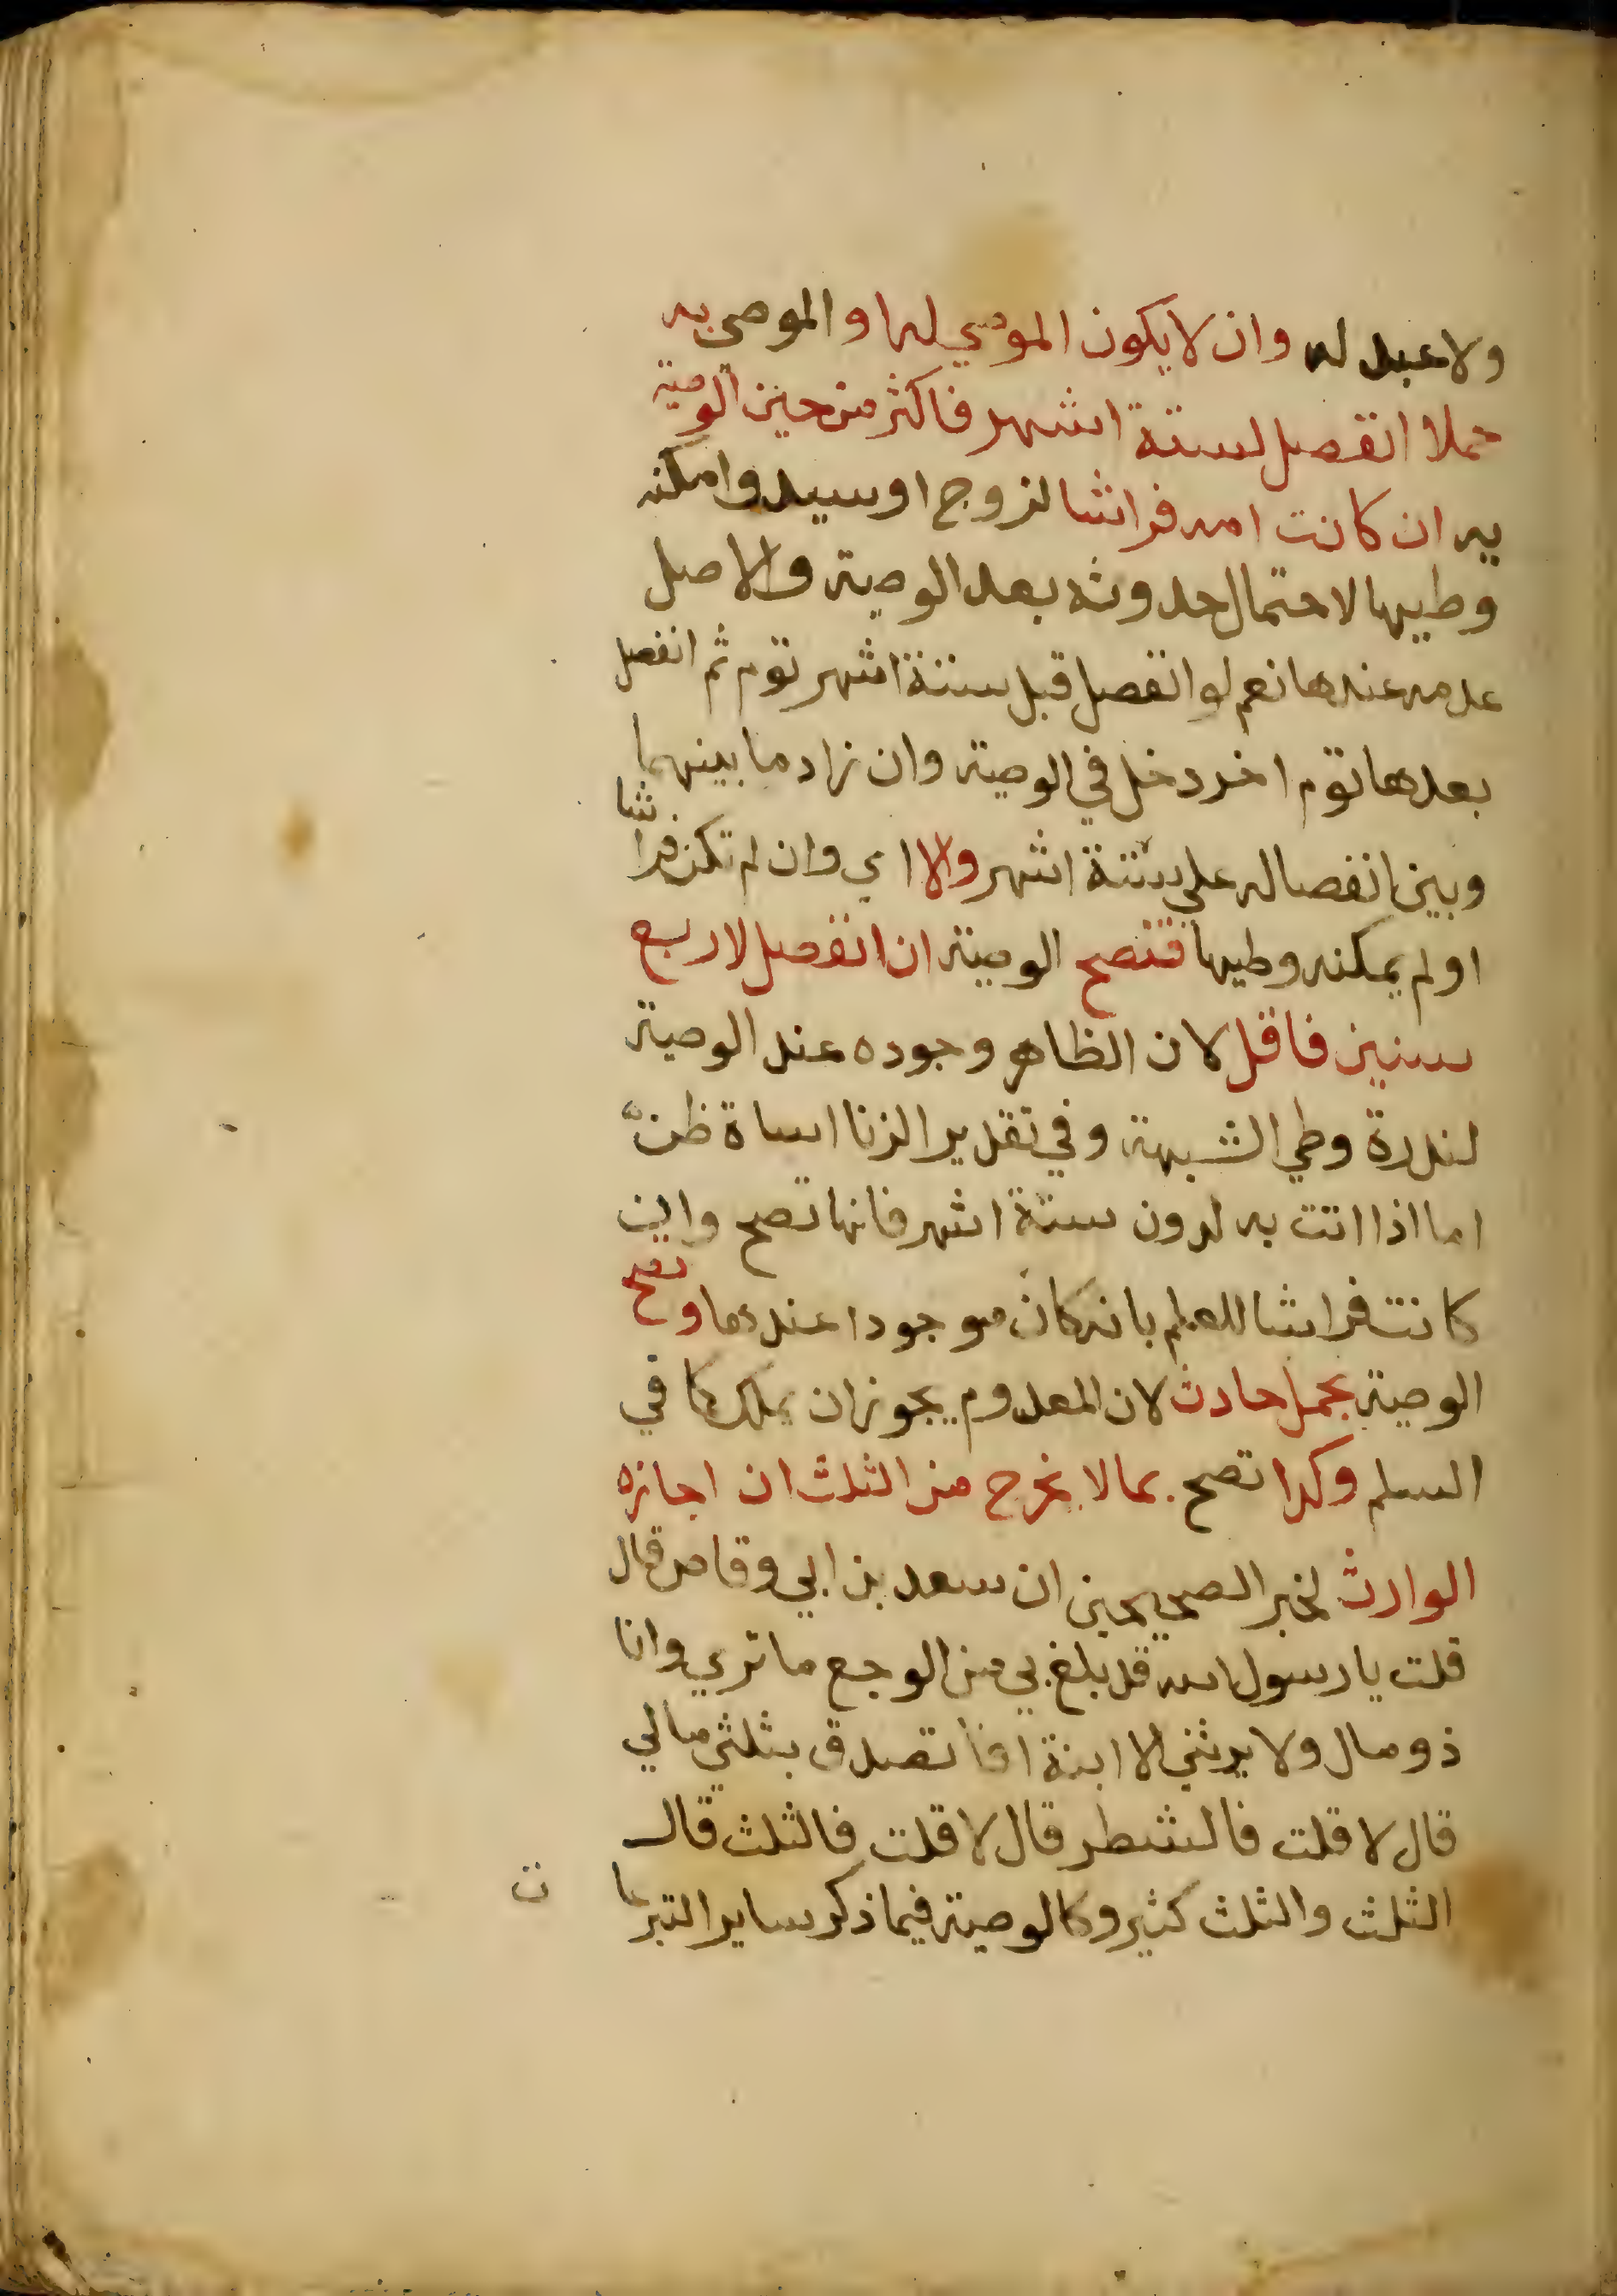 ولا عبد له وان لا يكون الموصي له او الموصى به
حملا انفصل لستة اشهر فاكثر من حين الوصية
به ان كانت امه فراشا لزوج او سيد وامكنه
وطيها لاحتمال حدوثه بعد الوصية والاصل
عدمه عندها نعم لو انفصل قبل ستة اشهر توم ثم انفصل
بعدها توم اخر دخل في الوصية وان زاد ما بينهما
وبين انفصاله على ستة اشهر والا اي وان لم تكن فراشا
او لم يمكنه وطيها فتصح الوصية ان انفصل لاربع
سنين فاقل لان الظاهر وجوده عند الوصية
لندرة وطي الشبهة وفي تقدير الزنا اساة ظنّ
اما اذا اتت به لدون ستة اشهر فانها تصح وان
كانت فراشا للعلم بانه كان موجودا عندها وتصح
الوصية بحمل حادث لان المعدوم يجوز ان يملك كما في
السلم وكذا تصح بما لا يخرج من الثلث ان اجازه
الوارث لخبر الصحيحين ان سعد بن ابي وقاص قال
قلت يا رسول الله قد بلغ بي من الوجع ما تري وانا
ذو مال ولا يرثني الا ابنة افا تصدق بثلثي مالي
قال لا قلت فالشطر قال لا قلت فالثلث قال
الثلث والثلث كثير وكالوصية فيما ذكر ساير التبرعات